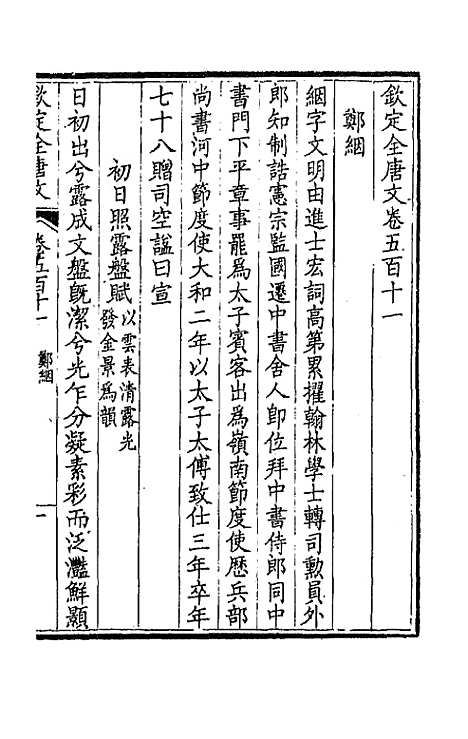 欽定全唐文卷五百十一
鄭絪
絪字文明由進士宏詞高第累擢翰林學士轉司勳員外
郎知制誥憲宗監國遷中書舍人卽位拜中書侍郎同中
書門下平章事罷爲太子賓客出爲嶺南節度使歷兵部
尚書河中節度使大和二年以太子太傅致仕三年卒年
七十八贈司空謚曰宣
初日照露盤賦以雲表清露光
發金景爲韻
日初出兮露成文盤旣潔兮光乍分凝素彩而泛灩鮮顥
欽定全唐文
卷五百十一
鄭絪
一